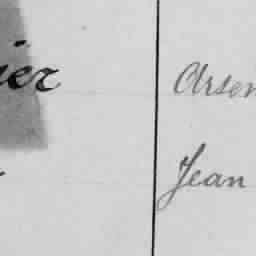 ier Arsen
Jean